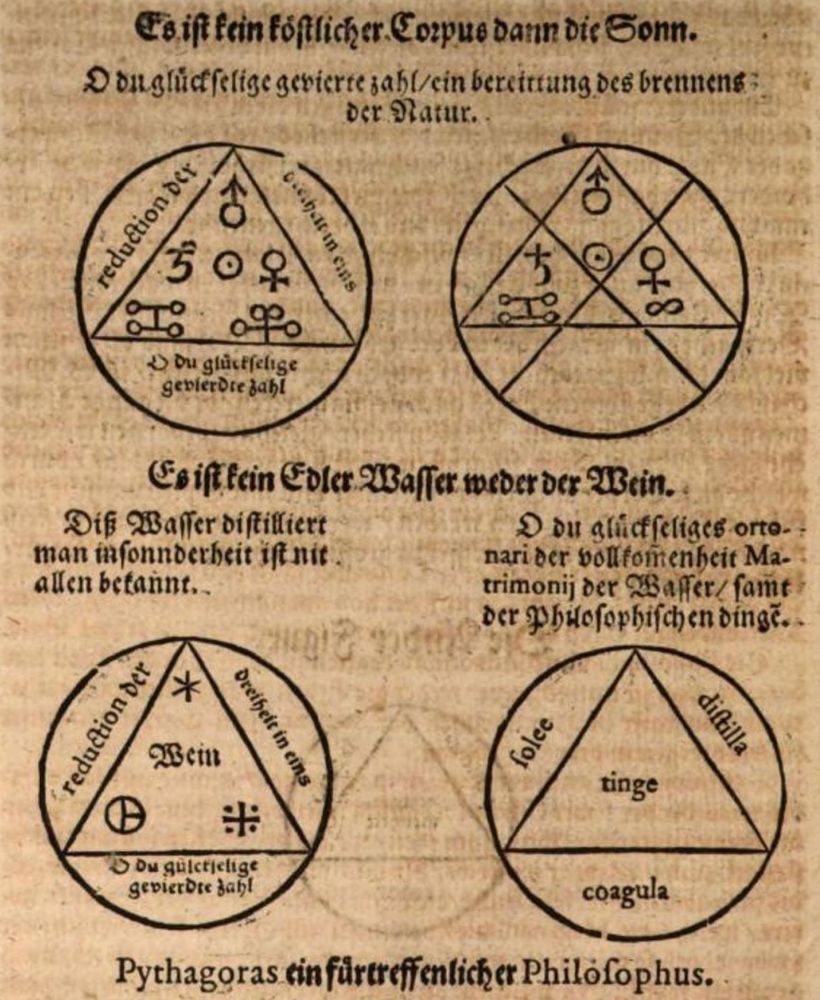 Es ist kein köstlicher Corpus dann die Sonn.
O du glückselige gevierte zahl/ein bereittung des brennens
der Natur.
reduction der
dreiheit in eins
O du glückselige
gevierdte zahl
Es ist kein Edler Wasser weder der Wein.
Diß Wasser distilliert
man insonnderheit ist nit
allen bekannt.
O du glückseliges orto-
nari der vollkom̄enheit Ma-
trimonij der Wasser/ samt
der Philosophischen dingẽ.
reduction der
dreiheit in eins
Wein
O du gülckselige
gevierdte zahl
solee
distilla
tinge
coagula
Pythagoras ein fürtreffenlicher Philosophus.